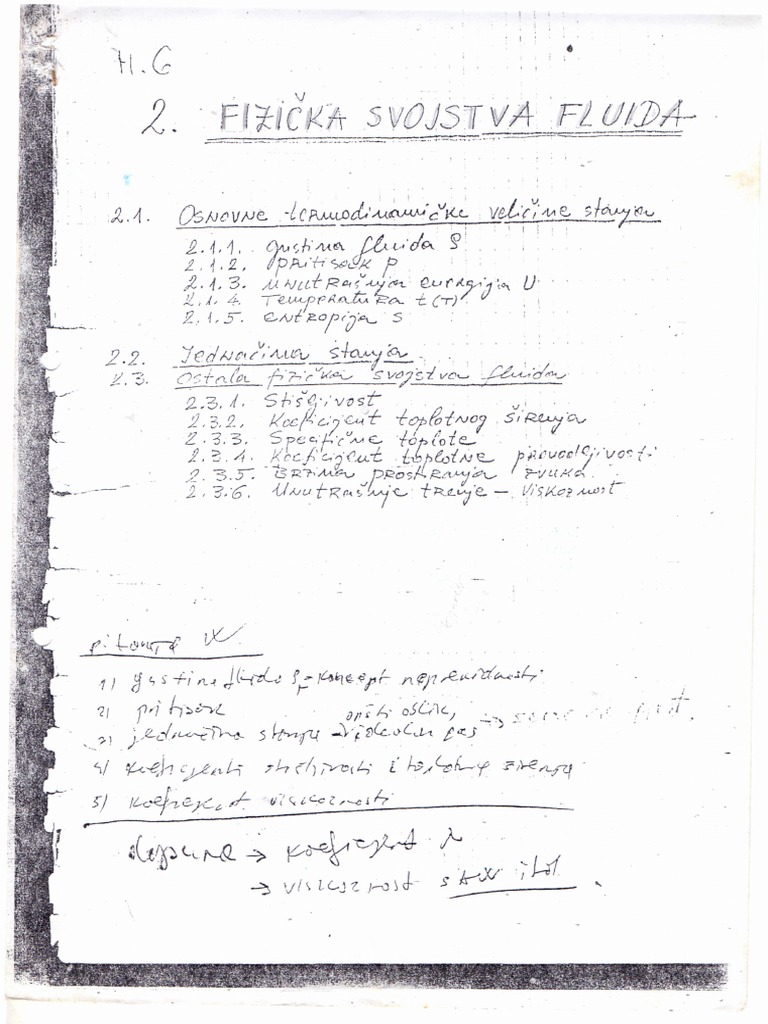 M.G
2. FIZIČKA SVOJSTVA FLUIDA
2.1. Osnovne termodinamičke veličine stanja
2.1.1. gustina fluida ρ
2.1.2. pritisak p
2.1.3. unutrašnja energija U
2.1.4. Temperatura t(T)
2.1.5. entropija s
2.2. Jednačina stanja
2.3. Ostala fizička svojstva fluida
2.3.1. Stišljivost
2.3.2. Koeficijent toplotnog širenja
2.3.3. Specifične toplote
2.3.4. Koeficijent toplotne provodljivosti
2.3.5. Brzina prostiranja zvuka
2.3.6. Unutrašnje trenje - viskoznost
pitanja
1) gustina fluida ρ, koncept neprekidnosti
2) pritisak
opšti oblik,
3) jednačina stanja - idealan gas
4) koeficijenti stišljivosti i toplotnog širenja
5) koeficijent viskoznosti
dopuna → koeficijent λ
→ viskoznost